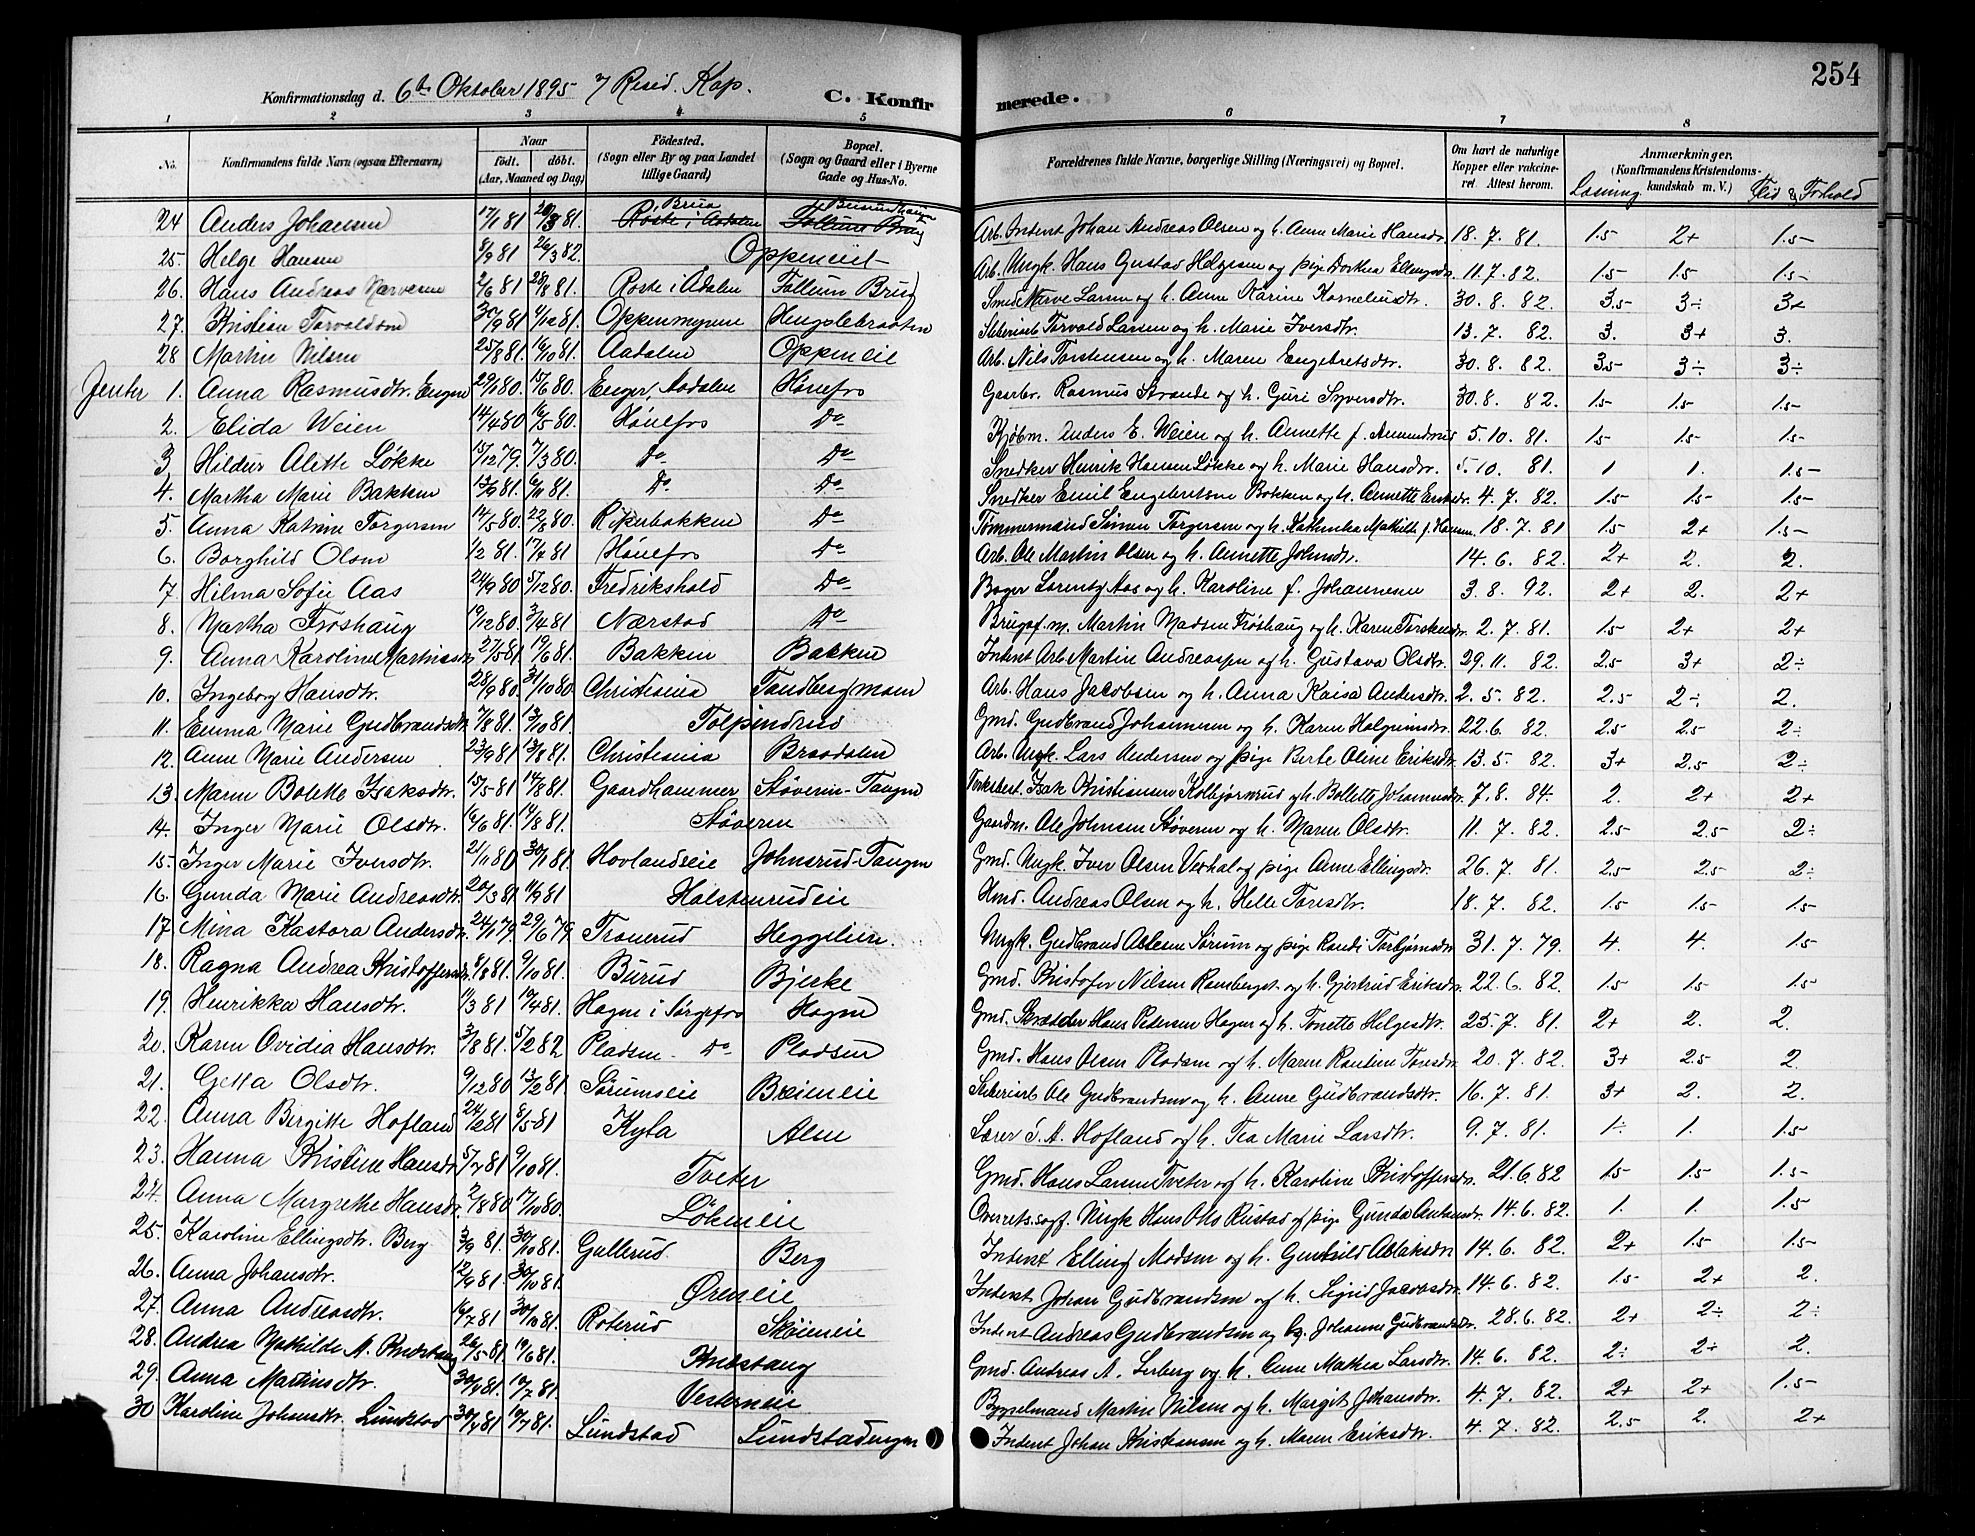 254
Konfirmationsdag d. 6te Oktober 1895 v Resid. Kap. C. Konfir merede.
1 2 3 4 5 6 7 8
No. Konfirmandens fulde Navn (ogsaa Efternavn) Naar født. døbt. (Aar, Maaned og Dag) Fødested. (Sogn eller By og paa Landet tillige Gaard) Bopæl. (Sogn og Gaard eller i Byerne Gade og Hus-No. Forældrenes fulde Navne, borgerlige Stilling (Næringsvei) og Bopæl. Om havt de naturlige Kopper eller vaccineret. Attest herom. Anmærkninger. (Konfirmandens Kristendomskundskab m. V.) Læsning Flid & Forhold
24 Anders Johansen 17/1 81 20/3 81. Røste i Aadalen Follum Brug Arb. Inderst Johan Andreas Olsen og h. Anne Marie Hansdr. 18. 7. 81. 1.5 2+ 1.5
25. Helge Hansen 8/9 81 26/3 82. Oppeneiet Arb. Ungk. Hans Gustav Helgesen og pige Dorthea Ellingsdr. 11. 7. 82. 1.5 1.5 1.5
26. Hans Andreas Narvesen 2/6 81 28/8 81. Røste i Ådalen Follum Brug Smed Narve Larsen og h. Anne Karine Korneliusdtr. 30. 8. 82. 3.5 3÷ 3+
27. Kristian Torvaldsen 30/9 81 4/12 81. Oppenmyrene Hengslebraaten Sliberiarb Torvald Larsen og h. Marie Iversdtr. 13. 7. 82. 3. 3+ 3.
28 Martin Nilsen 25/8 81. 16/10 81. Aadalen Oppeneie Arb. Nils Torstensen og h. Maren Engebretsdtr. 30. 8. 82. 3.5 3÷ 3÷
Jenter 1. Anna Rasmusdtr. Engen 29/1 80. 15/6 80. Enger, Aadalen Hønefos Gaarbr. Rasmus Strande og h. Guri Syversdtr. 30. 8. 82. 1.5 1.5 1.5
2. Elida Weien 14/4 80 16/5 80. Hønefos Do Kjøbm. Anders E. Weien og h. Annette f. Amundrud 5. 10. 81. 1.5 1.5 1.5
3 Hildur Alette Løkke 15/12 79. 7/3 80. Do Do Snedker Henrik Hansen Løkke og h. Marie Hansdr. 5. 10. 81. 1 1. 1.5
4. Martha Marie Bakken 13/9 81. 6/11 81. Do. Do Snedker Emil Engebretsen Bakken og h. Annette Eriksdr. 4. 7. 82. 1.5 1.5 1.5
5. Anna Katrine Torgersen 14/5 80. 22/8 80. Ripenbakken Do Tømmermand Simon Torgersen og h. Kathinka Mathilde f. Hansen. 18. 7. 81 1.5 2+ 1.5
6. Borghild Olsen 1/2 81. 17/4 81 Hønefos Do Arb. Ole Martin Olsen og h. Annette Johnsdr. 14. 6. 82. 2+ 2. 2.
7 Hilma Sofie Aas 24/9 80 5/12 80. Fredrikshald Do Bager Lorentz Aas og h. Karoline f. Johannesen 3. 8. 92. 2+ 2. 2+
8. Martha Frøshaug 19/12 80. 3/4 81 Nærstad Do Brugsf.m. Martin Madsen Frøshaug og h. Karen Torstensdr. 2. 7. 81. 1.5 2+ 2+
9. Anna Karoline Martinsdtr 27/5 81 19/6 81. Bakken Bakken Inderst Arb Martin Andreassen og h. Gustava Olsdtr. 29. 11. 82. 2.5 3+ 2÷
10. Ingeborg Hansdtr. 28/9 80. 31/10 80 Christiania Tandbergmoen Arb. Hans Jacobsen og h. Anna Kaisa Andersdtr. 2. 5. 82. 2.5 2÷ 2.
11. Emma Marie Gudbrandsdtr 7/8 81. 13/10 81. Tolpinrud Gmd. Gudbrand Johannesen og h. Karen Halgrimsdtr. 22. 6. 82. 2.5 2.5 2÷
12. Anne Marie Andersen 23/9 81 13/11 81. Christiania Braadalen Arb. Ungk. Lars Andersen og pige Berte Oline Eriksdtr. 13. 5. 82. 3+ 2.5 2÷
13. Maren Bolette Isaksdtr. 15/5 81 14/8 81. Gaardhammer Støveren-Tangen Isak Kristiansen Kolbjørnrud og h. Bollette Johannesdtr. 7. 8. 84. 2. 2+ 2+
14. Inger Marie Olsdtr. 16/6 81 14/8 81. Støveren Gaardm. Ole Johnsen Støveren og h. Maren Olsdtr. 11. 7. 82. 2.5 2.5 2÷
15. Inger Marie Iversdtr. 21/11 80 30/1 81. Hovlandseie Johnsrud-Tangen Gmd. Ungk. Iver Olsen Verhal og pige Anne Ellingsdr. 26. 7. 81. 2.5 2.5 2÷
16. Gunda Marie Andreasdtr. 20/3 81 11/9 81 Halstenrudeie Hmd. Andreas Olsen og h. Helle Toresdtr. 18. 7. 82. 1.5 1.5 1.5
17 Mina Kastora Andersdtr. 24/1 79 29/6 79 Tronerud Heggelien. Ungk. Gudbrand Ablesen Sørum og pige Randi Torbjørnsdtr. 31. 7. 79. 4. 4. 1.5
18. Ragna Andrea Kristoffersdtr. 8/8 81. 9/10 81. Burud Bjerke Gmd. Kristofer Nilsen Ramberget og h. Gjertrud Eriksdtr. 22. 6. 82. 1.5 1.5 1.5
19. Henrikka Hansdtr. 11/3 81 17/4 81. Hagne i Sørgefos Hagen Gmd. Skrædder Hans Pedersen Hagen og h. Tonette Helgesdtr. 25. 7. 81. 2+ 2. 2.
20. Karen Ovidia Hansdtr. 3/8 81. 5/2 82 Pladsen - Do Pladsen Gmd. Hans Olsen Pladsen og h. Maren Rantine Toresdtr. 20. 7. 82. 3+ 2.5 2.
21. Getta Olsdtr. 9/12 80 13/2 81. Sørumseie Breineie Sliberiarb Ole Gudbrandsen og h. Anne Gudbrandsdtr. 16. 7. 81. 3+ 2. 2.
22. Anna Birgitte Hofland 24/2 81 8/5 81 Kyta Alm Lærer S. A. Hofland og h. Tea Marie Larsdtr. 9. 7. 81. 1÷ 1. 1.5
23. Hanna Kristine Hansdtr 5/7 81 9/10 81. Tveter Gmd. Hans Larsen Tveter og h. Karoline Kristoffersdr. 21. 6. 82 1.5 1.5 1.5
24. Anna Margrethe Hansdtr. 2/8 80 17/10 80. Løkneie Overrets.sagf. Ungk Hans Olls Rustad og pige Gunda Antonsdr. 14. 6. 82. 1. 1. 1.5
25. Karoline Ellingsdtr. Berg 3/9 81. 30/10 81. Gullerud. Berg Inderst Elling Madsen og h. Gunhild Aslaksdr. 14. 6. 82. 2+ 1.5 1.5
26. Anna Johansdtr. 12/9 81. 30/10 81. Øreneie Inderst Johan Gudbrandsen og h. Sigrid Jacobsdtr. 14. 6. 82. 1.5 2+ 2.
27. Anna Andreasdtr. 16/7 81 30/10 81. Roterud Skøieneie Inderst Andreas Gudbrandsen og h. Johanne Gudbrandsdtr. 28. 6. 82. 2+ 2÷ 2÷
28. Andrea Mathilde A. Knestang 26/5 81 19/6 81. Knestang Gmd. Andreas A. Lerberg og h. Anne Mathea Larsdtr. 14. 6. 82. 2÷ 2÷ 2.
29. Anna Martinsdtr. 30/4 81. 10/7 81. Vesterneie Bygselmand Martin Nilsen og h. Margit Johansdtr. 4. 7. 82. 2+ 2+ 1.5
30 Karoline Johansdtr. Lundstad 30/4 81 10/7 81. Lundstad Lundstadengen Inderst Johan Kristiansen og h. Maren Eriksdtr. 4. 7. 82. 2.5 2. 2+